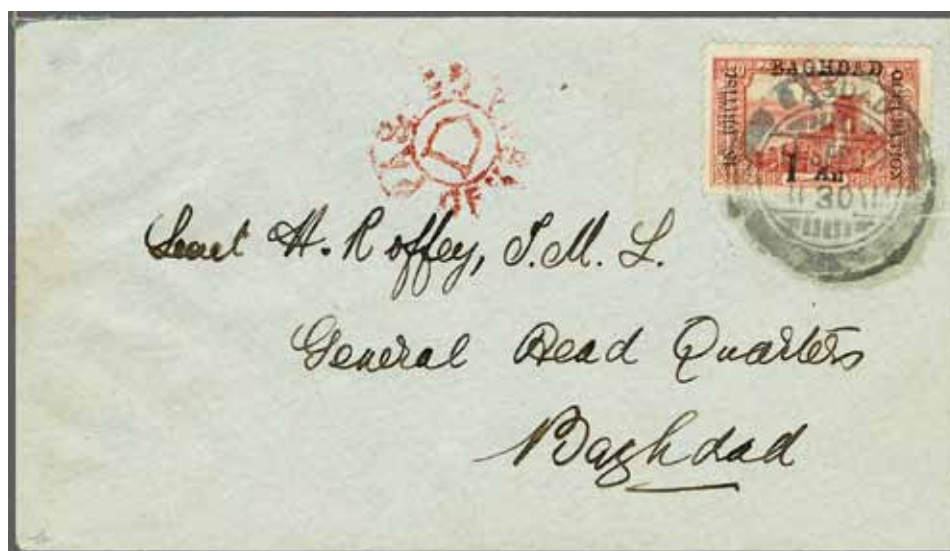 BAGHDAD
IN BRITISH
OCCUPATION
1 An
30
Lieut H. Roffey, I.M.L.
General Head Quarters
Baghdad